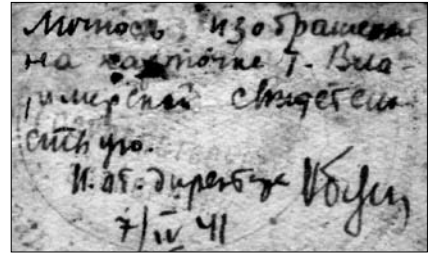 Личность изображен
на карточке т. Вла-
димерской свидетель-
ствую.
И. об. директора
7/IV 41